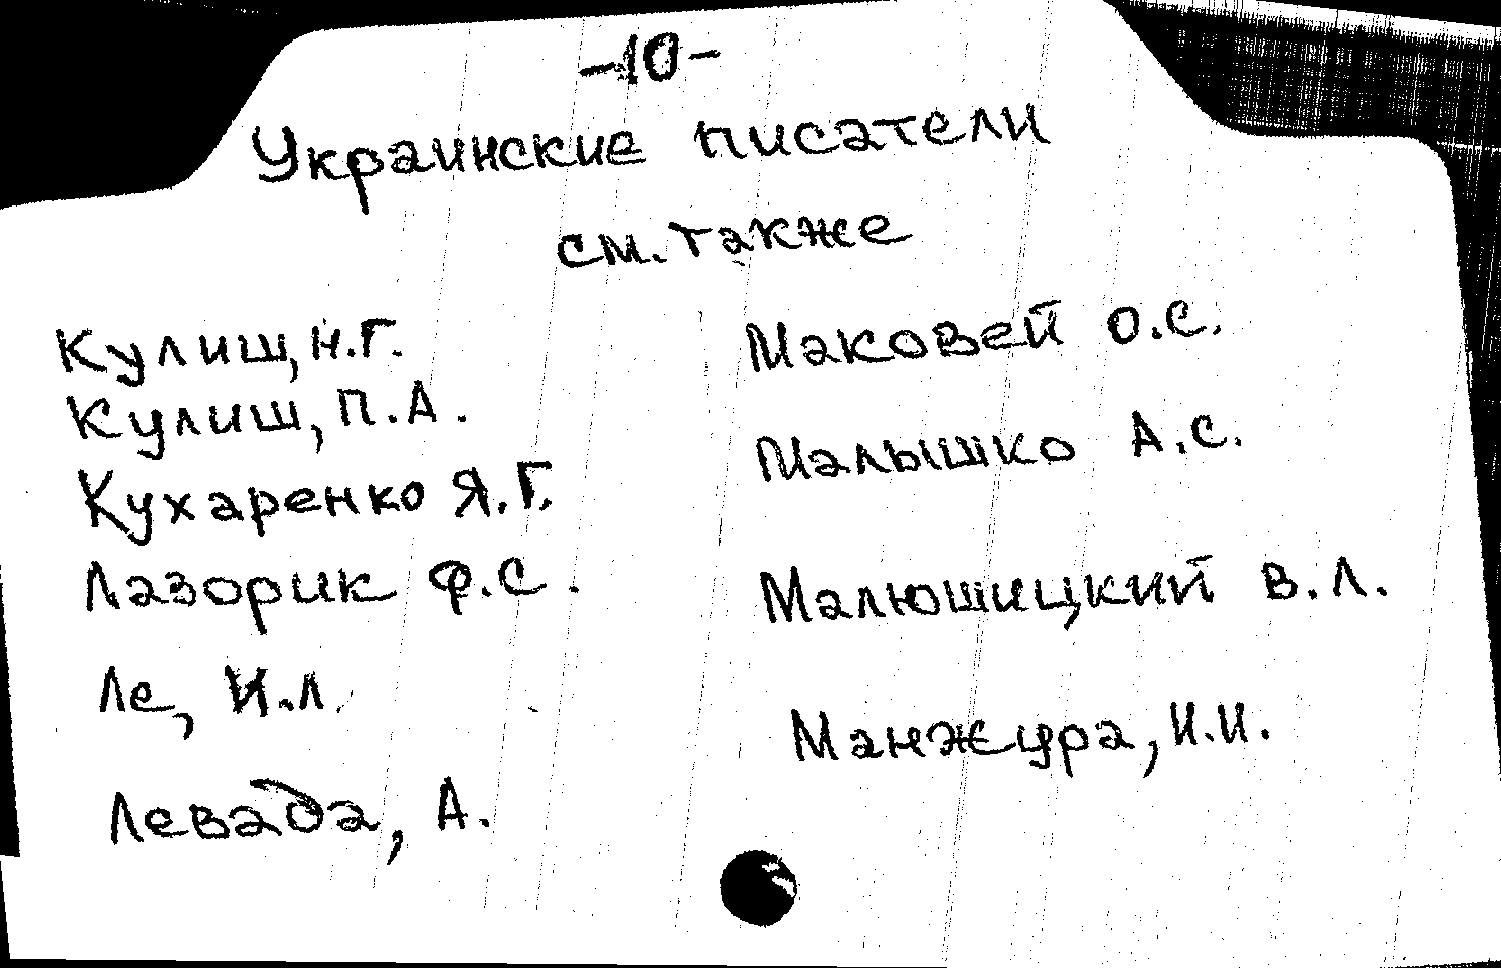 -10-
Украинские писатели
см. также
Кулиш, Н.Г.
Кулиш, П.А.
Кухаренко Я.Г.
Лазорик Ф.С.
Ле, И.Л.
Левада, А.
Маковей О.С.
Малышко А.С.
Малюшицкий В.Л.
Манжура, И.И.